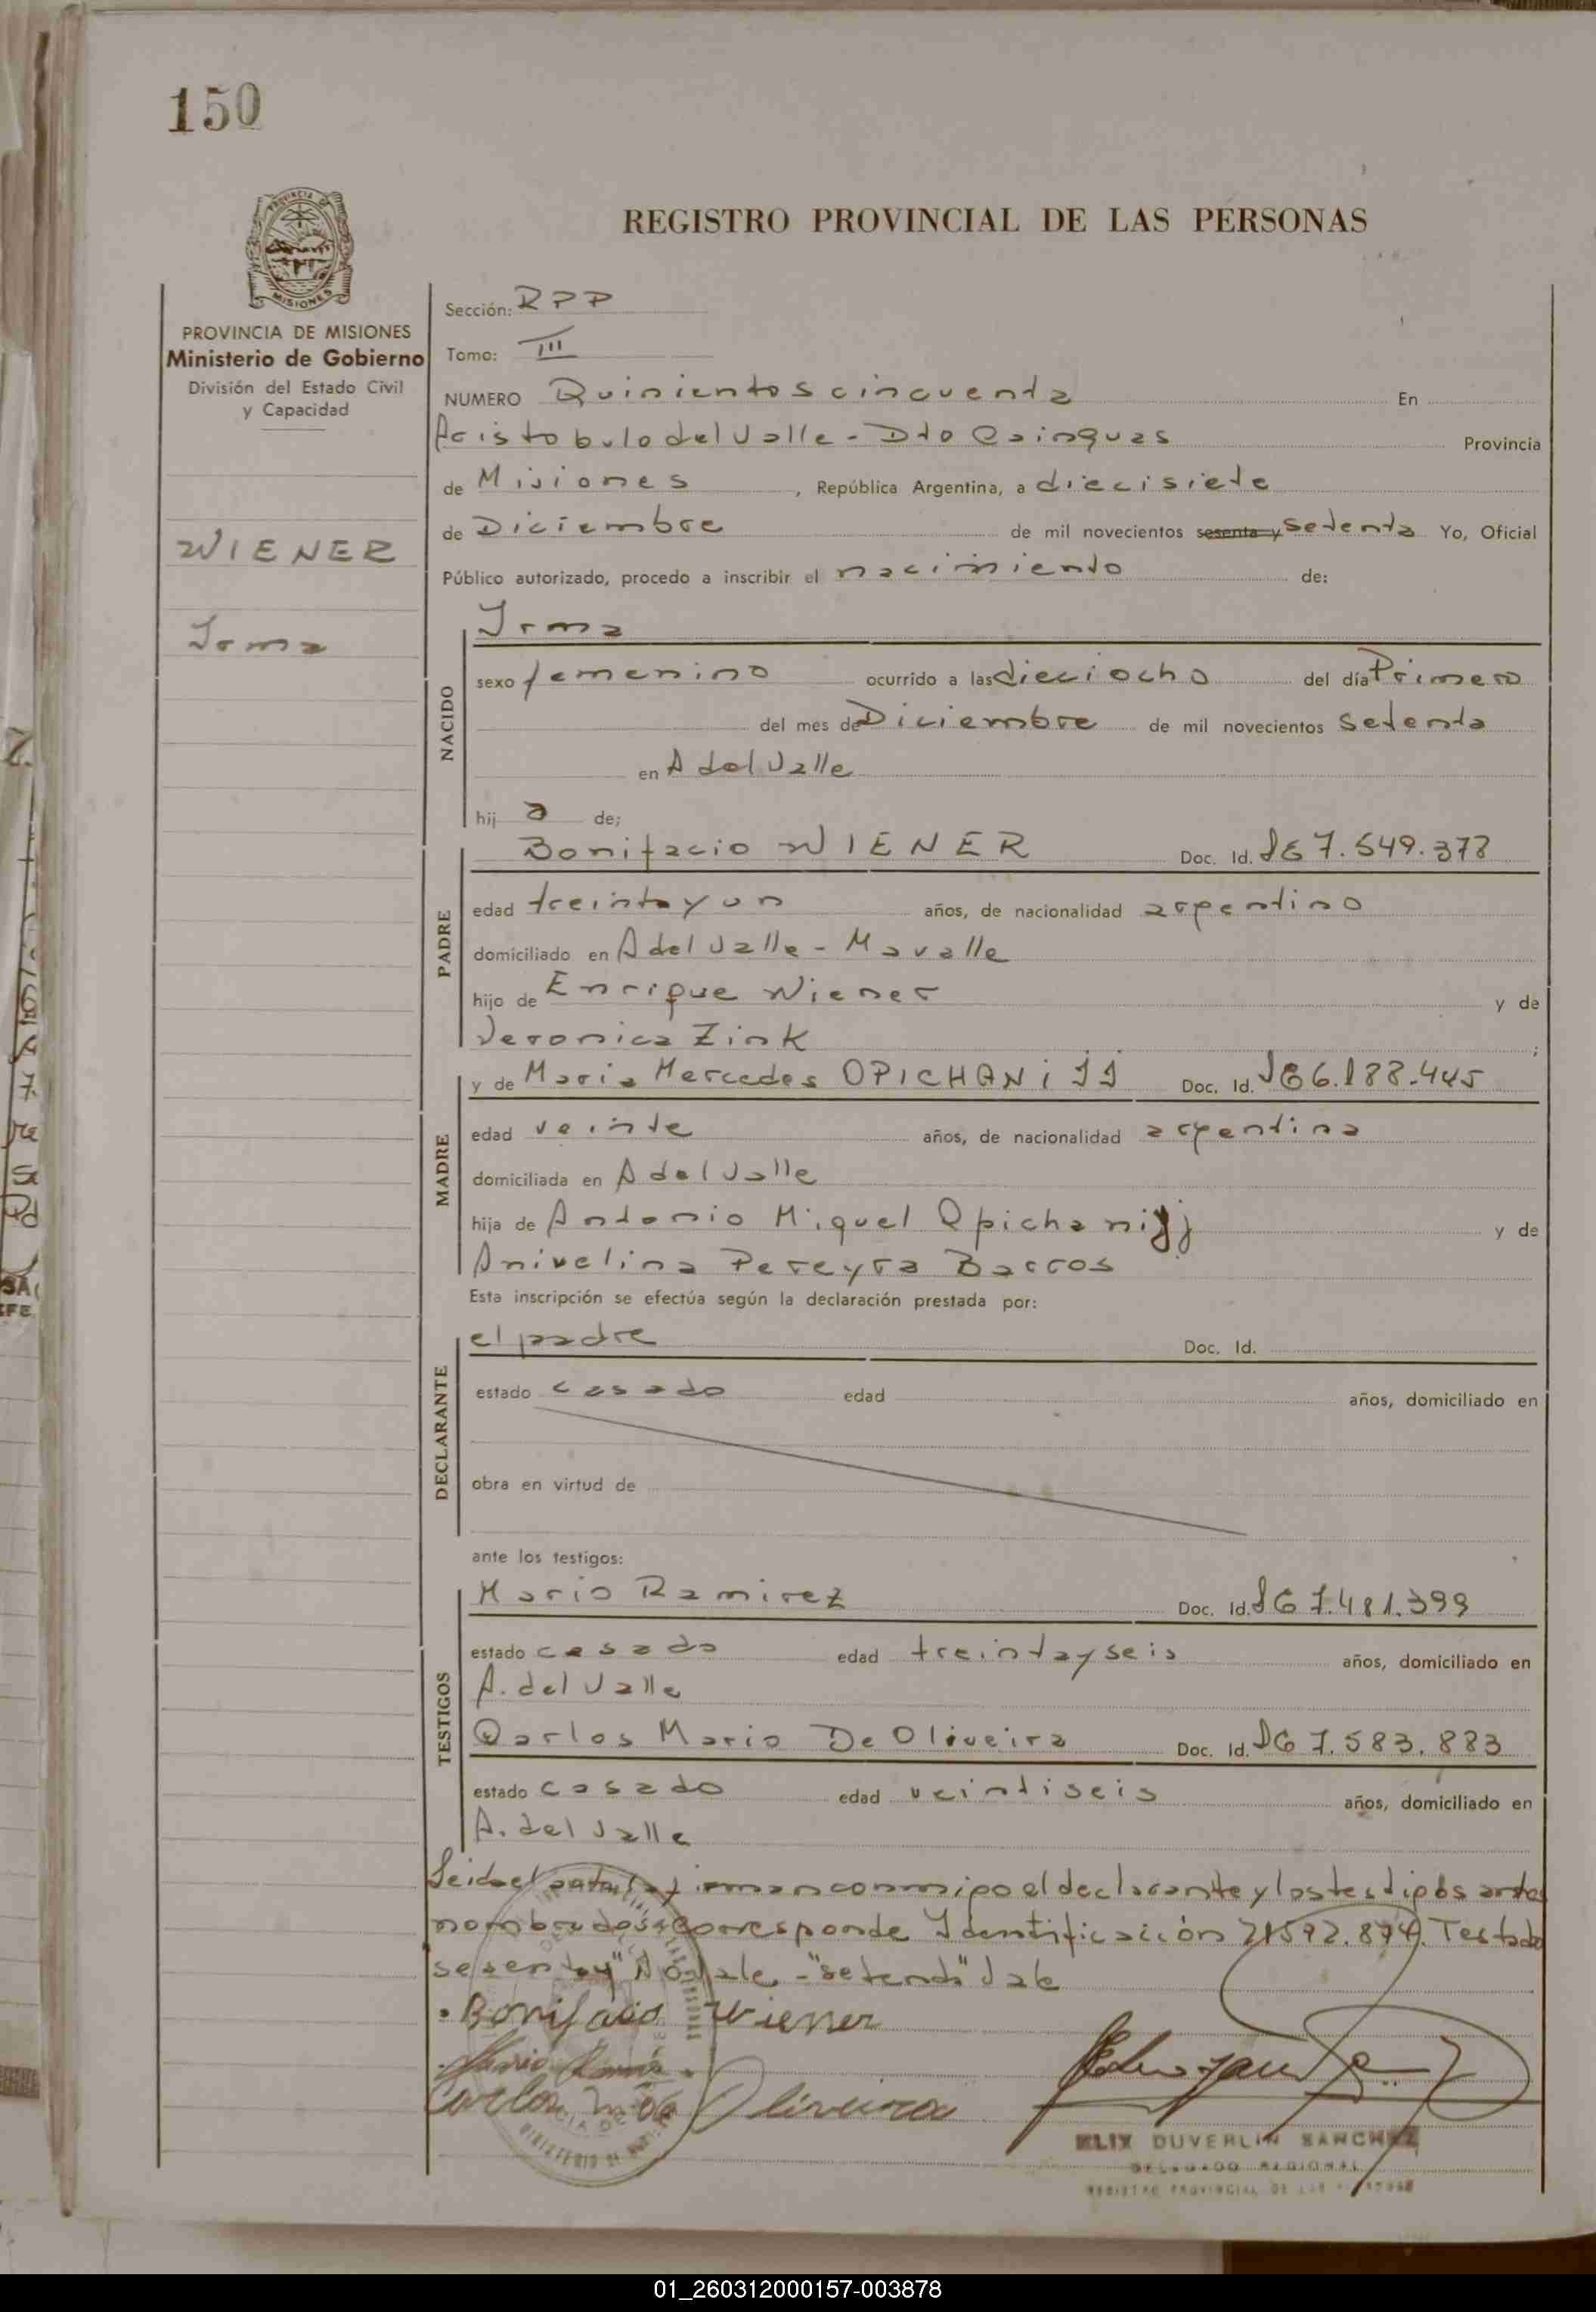 150
REGISTRO PROVINCIAL DE LAS PERSONAS
PROVINCIA DE MISIONES
Ministerio de Gobierno
División del Estado Civil
y Capacidad
WIENER
Irma
Sección: RPP
Tomo: III
NUMERO Quinientos cincuenta En
Aristobulo del Valle - Dto Cainguas Provincia
de Misiones, República Argentina, a diecisiete
de Diciembre de mil novecientos sesenta y Setenta Yo, Oficial
Público autorizado, procedo a inscribir el nacimiento de:
NACIDO
Irma
sexo femenino ocurrido a las dieciocho del día Primero
del mes de Diciembre de mil novecientos Setenta
en A del Valle
hij a de;
PADRE
Bonifacio WIENER Doc. Id. 7.549.378
edad treinta y un años, de nacionalidad argentino
domiciliado en A del Valle - Mavalle
hijo de Enrique Wiener y de
Veronica Zink ;
MADRE
y de Maria Mercedes OPICHANiJJ Doc. Id. 6.188.445
edad veinte años, de nacionalidad argentina
domiciliada en A del Valle
hija de Antonio Miguel Opichanijj y de
Anivelina Pereyra Barros
Esta inscripción se efectúa según la declaración prestada por:
DECLARANTE
el padre Doc. Id.
estado casado edad años, domiciliado en
obra en virtud de
ante los testigos:
TESTIGOS
Mario Ramirez Doc. Id. 7.481.399
estado casado edad treinta y seis años, domiciliado en
A. del Valle
Carlos Mario De Oliveira Doc. Id. 7.583.883
estado casado edad veintiseis años, domiciliado en
A. del Valle
Leida el acta firman conmigo el declarante y los testigos antes
nombrados corresponde Identificación Testado
"sesenta y" No vale - "setenta" Vale
Bonifacio Wiener
Mario
Carlos M de Oliveira
ELIX DUVERLIN SANCHEZ
DELEGADO REGIONAL
REGISTRO PROVINCIAL DE LAS
01_260312000157-003878